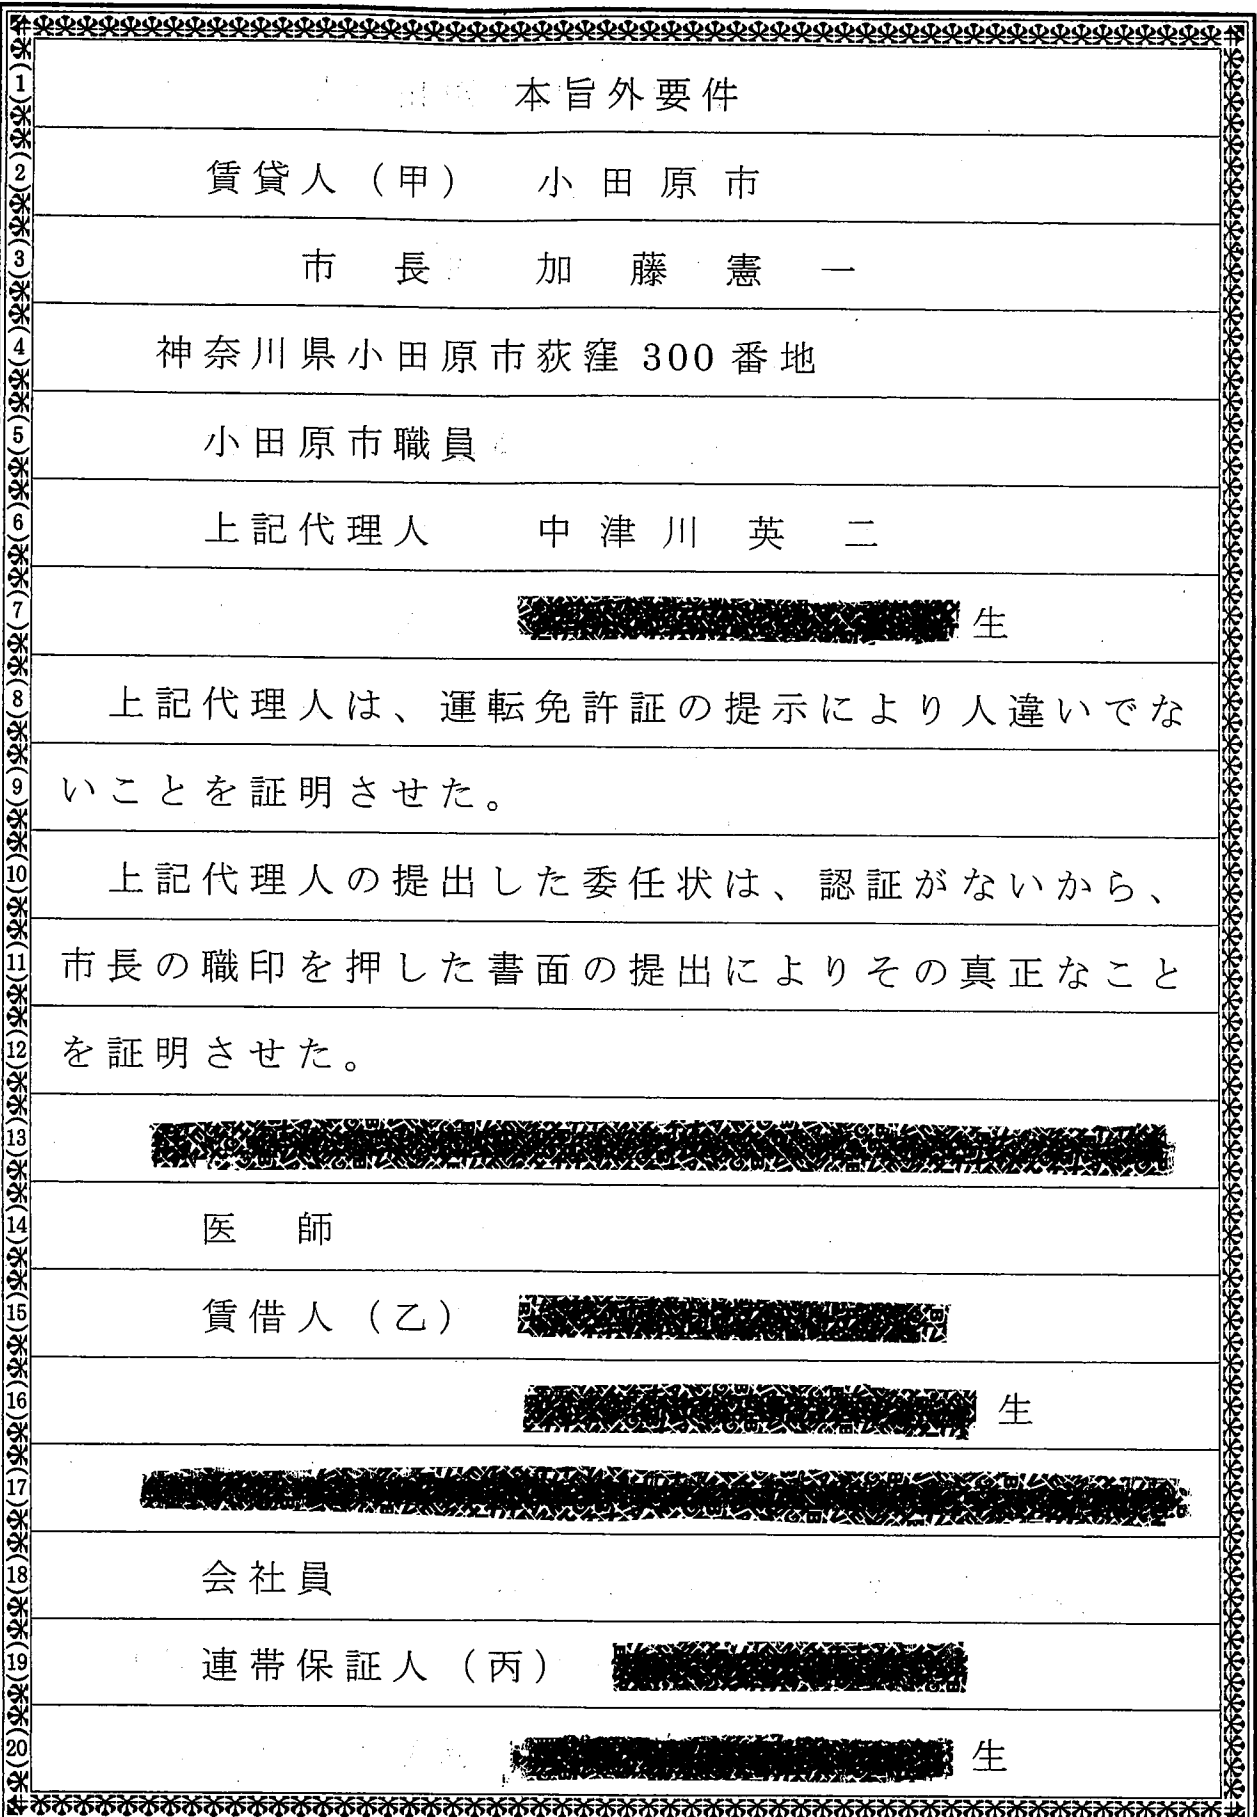 (1) 本旨外要件
(2) 賃貸人（甲） 小田原市
(3) 市長 加藤憲一
(4) 神奈川県小田原市荻窪 300 番地
(5) 小田原市職員
(6) 上記代理人 中津川英二
(7) 生
(8) 上記代理人は、運転免許証の提示により人違いでな
(9) いことを証明させた。
(10) 上記代理人の提出した委任状は、認証がないから、
(11) 市長の職印を押した書面の提出によりその真正なこと
(12) を証明させた。
(13)
(14) 医師
(15) 賃借人（乙）
(16) 生
(17)
(18) 会社員
(19) 連帯保証人（丙）
(20) 生